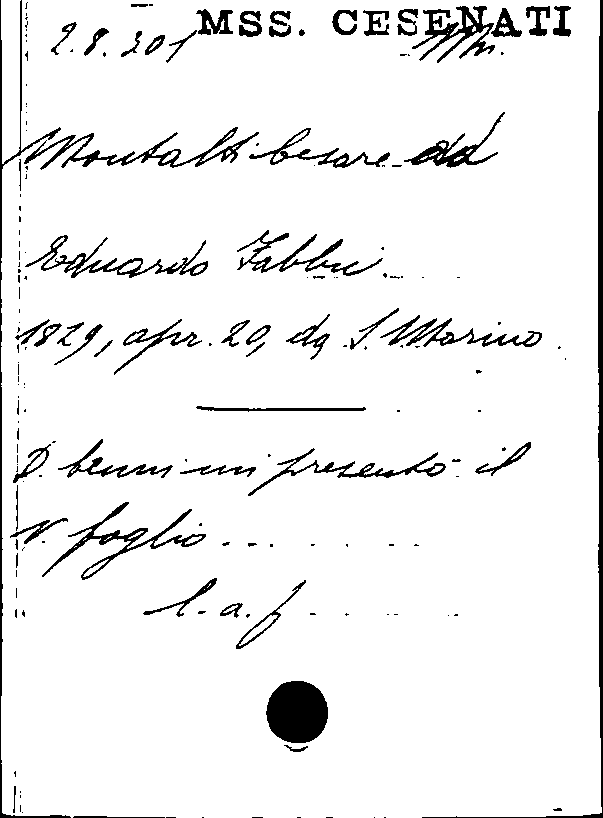 MSS. CESENATI
2.8.201
Montalti Cesare ad
Eduardo Fabbri.
1829, apr. 20, da S. Marino
D. Cenni mi presentò il
V. foglio........
l. a. f.....